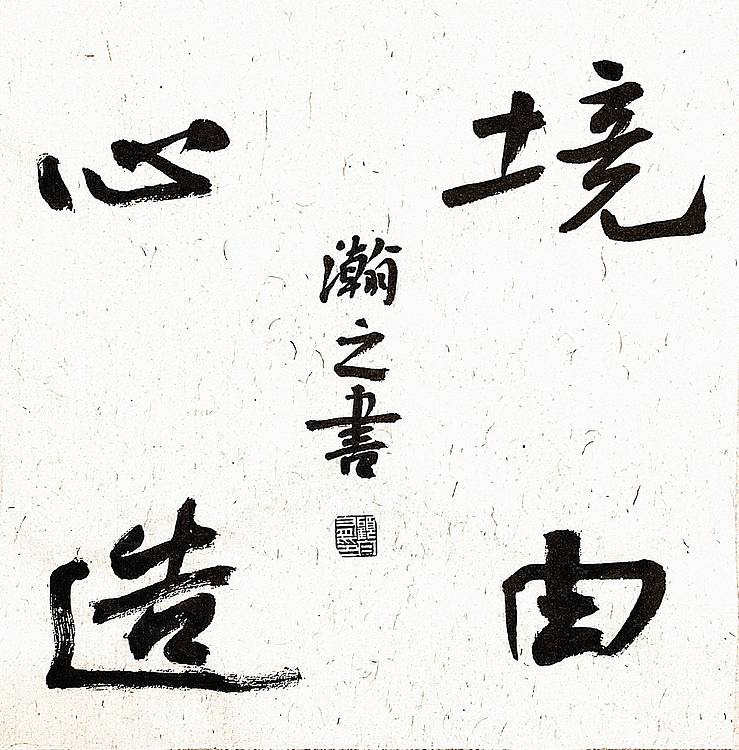 境由
心造
瀚之書